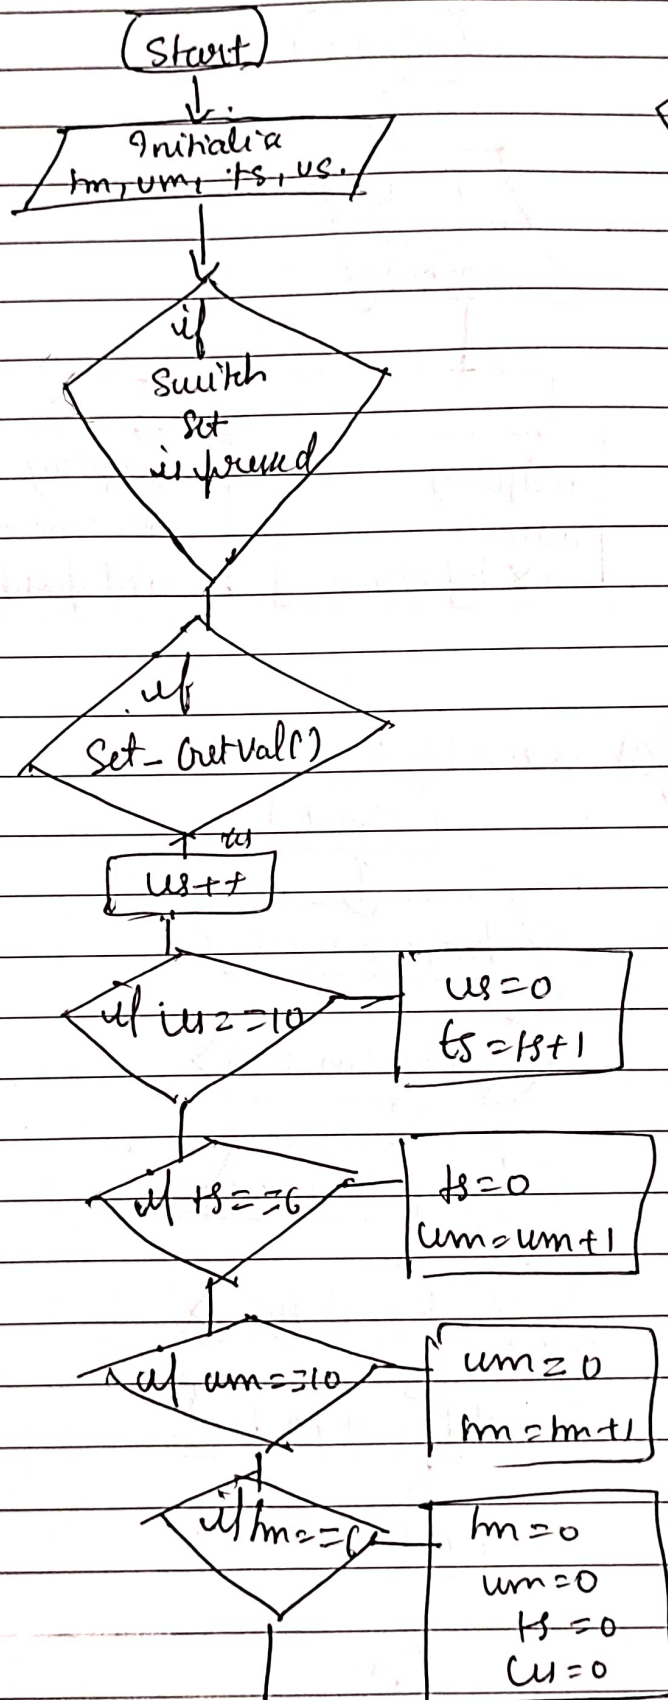 Start
Initialia
tm, um, ts, us.
if
Switch
Set
is pressed
if
Set_GetVal()
us
us++
if us==10
us=0
ts=ts+1
if ts==6
ts=0
um=um+1
if um==10
um=0
tm=tm+1
if tm==6
tm=0
um=0
ts=0
us=0